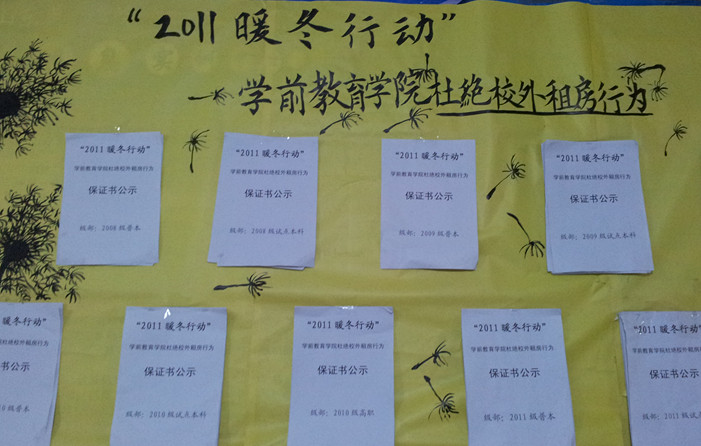 “2011暖冬行动”
学前教育学院杜绝校外租房行为
“2011暖冬行动”
学前教育学院杜绝校外租房行为
保证书公示
级部：2008级普本
“2011暖冬行动”
学前教育学院杜绝校外租房行为
保证书公示
级部：2008级试点本科
“2011暖冬行动”
学前教育学院杜绝校外租房行为
保证书公示
级部：2009级普本
“2011暖冬行动”
学前教育学院杜绝校外租房行为
保证书公示
级部：2009级试点本科
2011暖冬行动”
学院杜绝校外租房行为
保证书公示
级普本
“2011暖冬行动”
学前教育学院杜绝校外租房行为
保证书公示
级部：2010级试点本科
“2011暖冬行动”
学前教育学院杜绝校外租房行为
保证书公示
级部：2010级高职
“2011暖冬行动”
学前教育学院杜绝校外租房行为
保证书公示
级部：2011级普本
“2011暖冬行动”
学前教育学院杜绝校外租房
保证书公示
级部：2011级试点